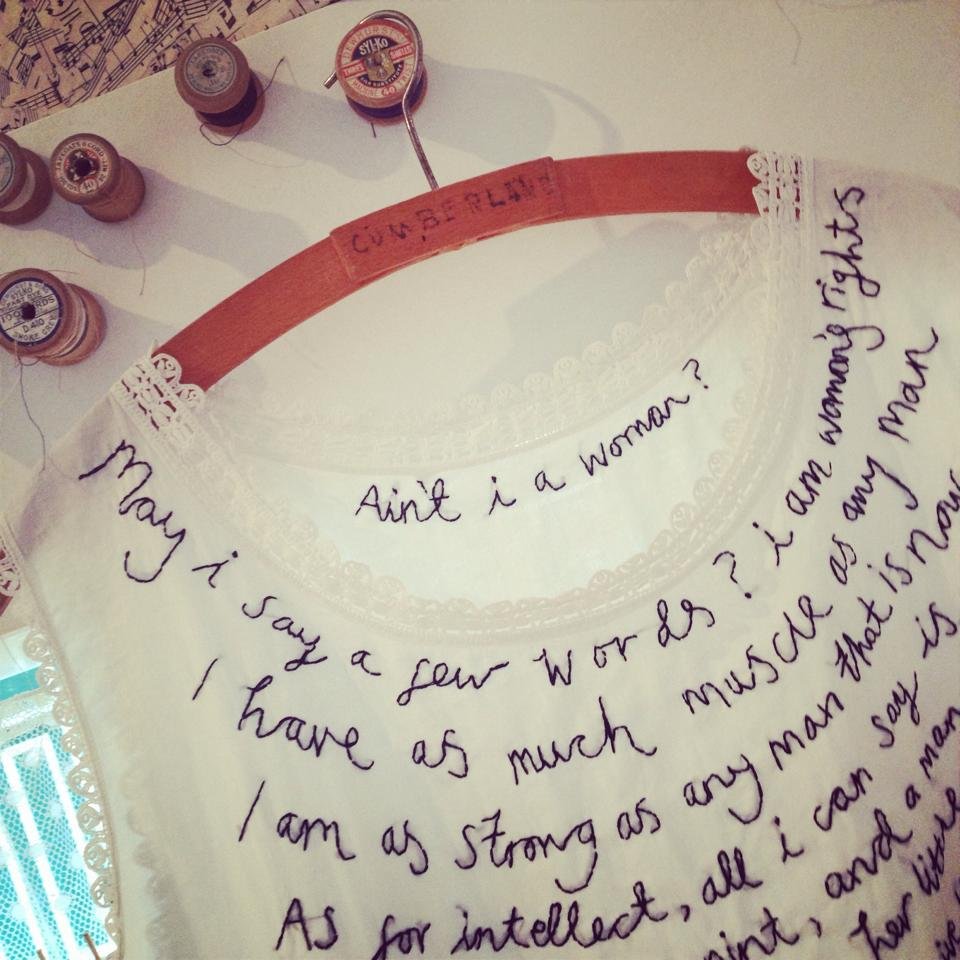 SYLKO
40
40
SYLKO
D.410
CUMBERLAND
Ain't i a woman?
May i say a few words? i am woman's rights
I have as much muscle as any man
I am as strong as any man that is now
As for intellect, all i can say is
pint, and a man
her little